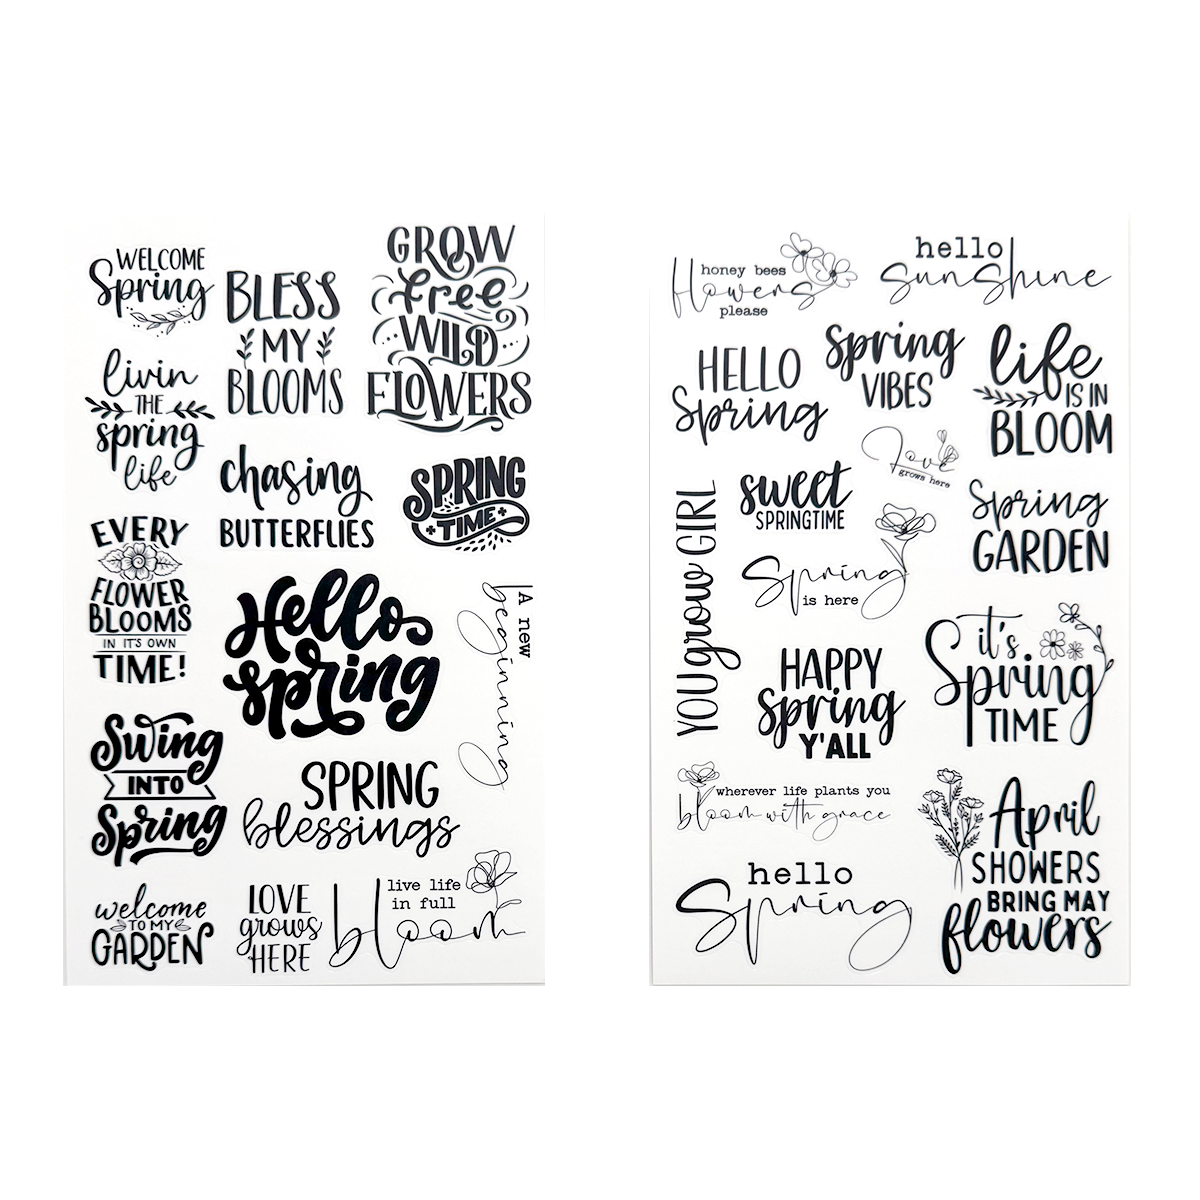 WELCOME
Spring
BLESS
MY
BLOOMS
GROW
free
WILD
FLOWERS
livin
THE
spring
life
chasing
BUTTERFLIES
SPRING
TIME
EVERY
FLOWER
BLOOMS
IN IT'S OWN
TIME!
Hello
spring
A new
beginning
Swing
INTO
Spring
SPRING
blessings
welcome
TO MY
GARDEN
LOVE
grows
HERE
live life
in full
bloom
honey bees
flowers
please
hello
sunshine
HELLO
Spring
spring
VIBES
life
IS IN
BLOOM
Love
grows here
sweet
SPRINGTIME
Spring
GARDEN
YOU grow GIRL
Spring
is here
HAPPY
Spring
Y'ALL
it's
Spring
TIME
wherever life plants you
bloom with grace
hello
Spring
April
SHOWERS
BRING MAY
flowers